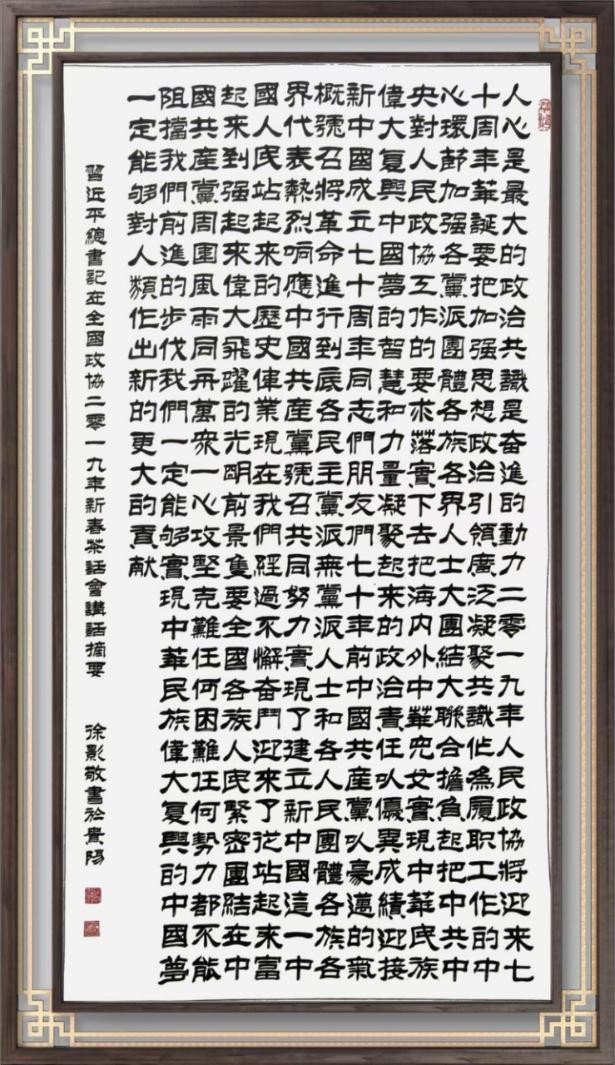 人心是最大的政治共識是奮進的動力二零一九年人民政協將迎來七
十周年華誕要把加强思想政治引領廣泛凝聚共識作為履职工作的中
心環節加强各黨派團體各族各界人士大團結大聯合擔負起把中共中
央對人民政協工作的要求落實下去把海内外中華兒女實現中華民族
偉大复興中國夢的智慧和力量凝聚起來的政治責任以優異成績迎接
新中國成立七十周年同志們朋友們七十年前中國共産黨以豪邁的氣
概號召將革命進行到底各民主黨派無黨派人士和各人民團體各族各
界代表熱烈响應中國共産黨號召共同努力實現了建立新中國這一中
國人民站起來的歷史偉業現在我們經過不懈奮鬥迎來了從站起來富
起來到强起來偉大飛躍的光明前景隻要全國各族人民緊密團結在中
國共産黨周圍風雨同舟萬衆一心攻堅克難任何困難任何勢力都不能
阻擋我們前進的步伐我們一定能够實現中華民族偉大复興的中國夢
一定能够對人類作出新的更大的貢献
習近平總書記在全國政協二零一九年新春茶話會講話摘要
徐影敬書於貴陽